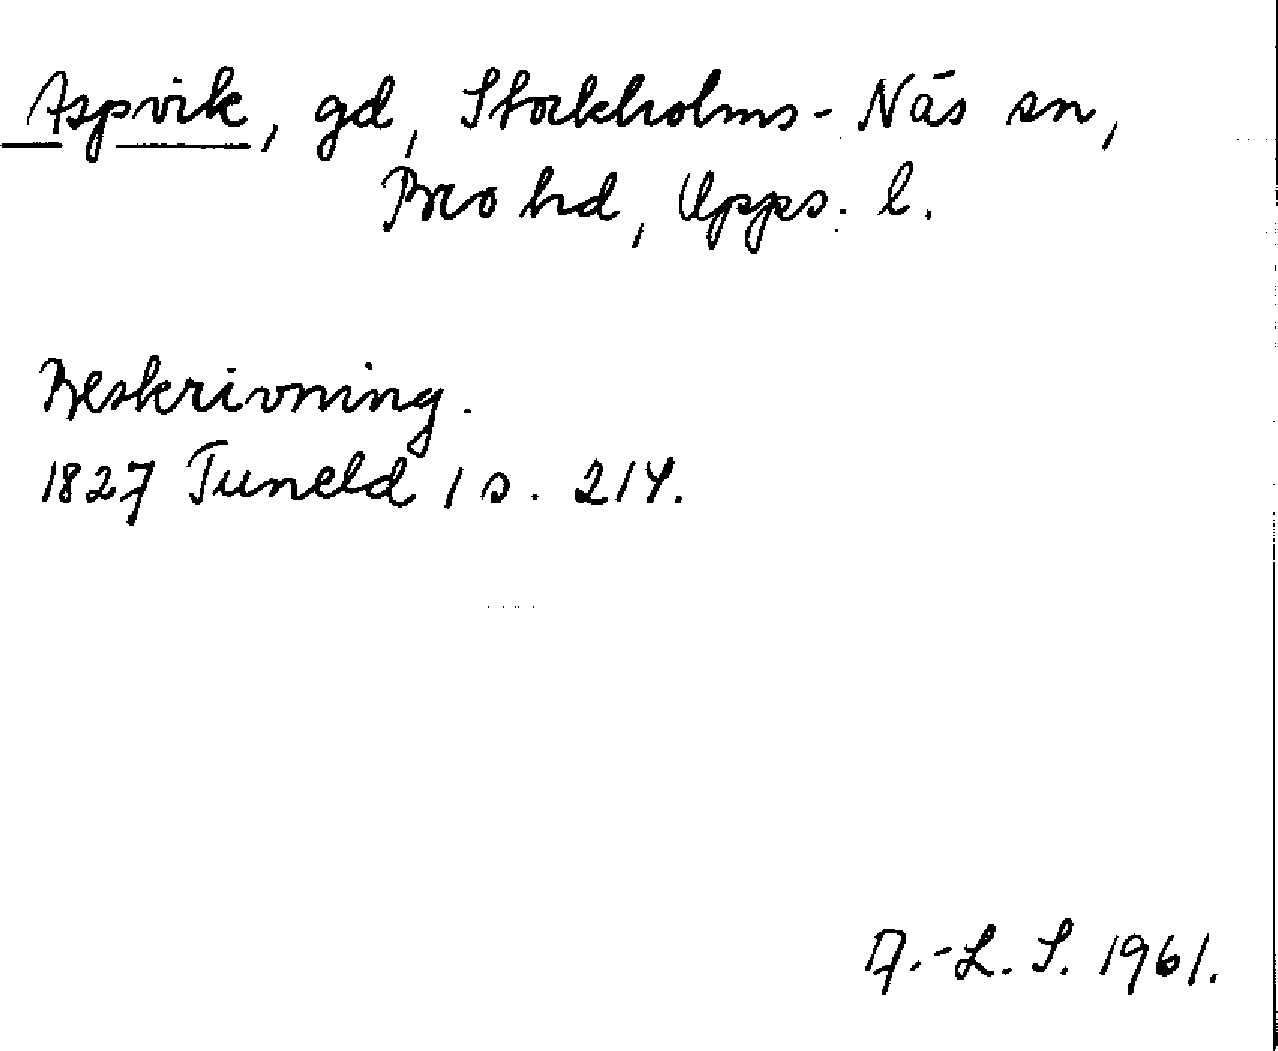 Aspvik, gd, Stockholms-Näs sn,
Bro hd, Upps. l.
Beskrivning.
1827 Tuneld 1 s. 214.
A.-L. S. 1961.